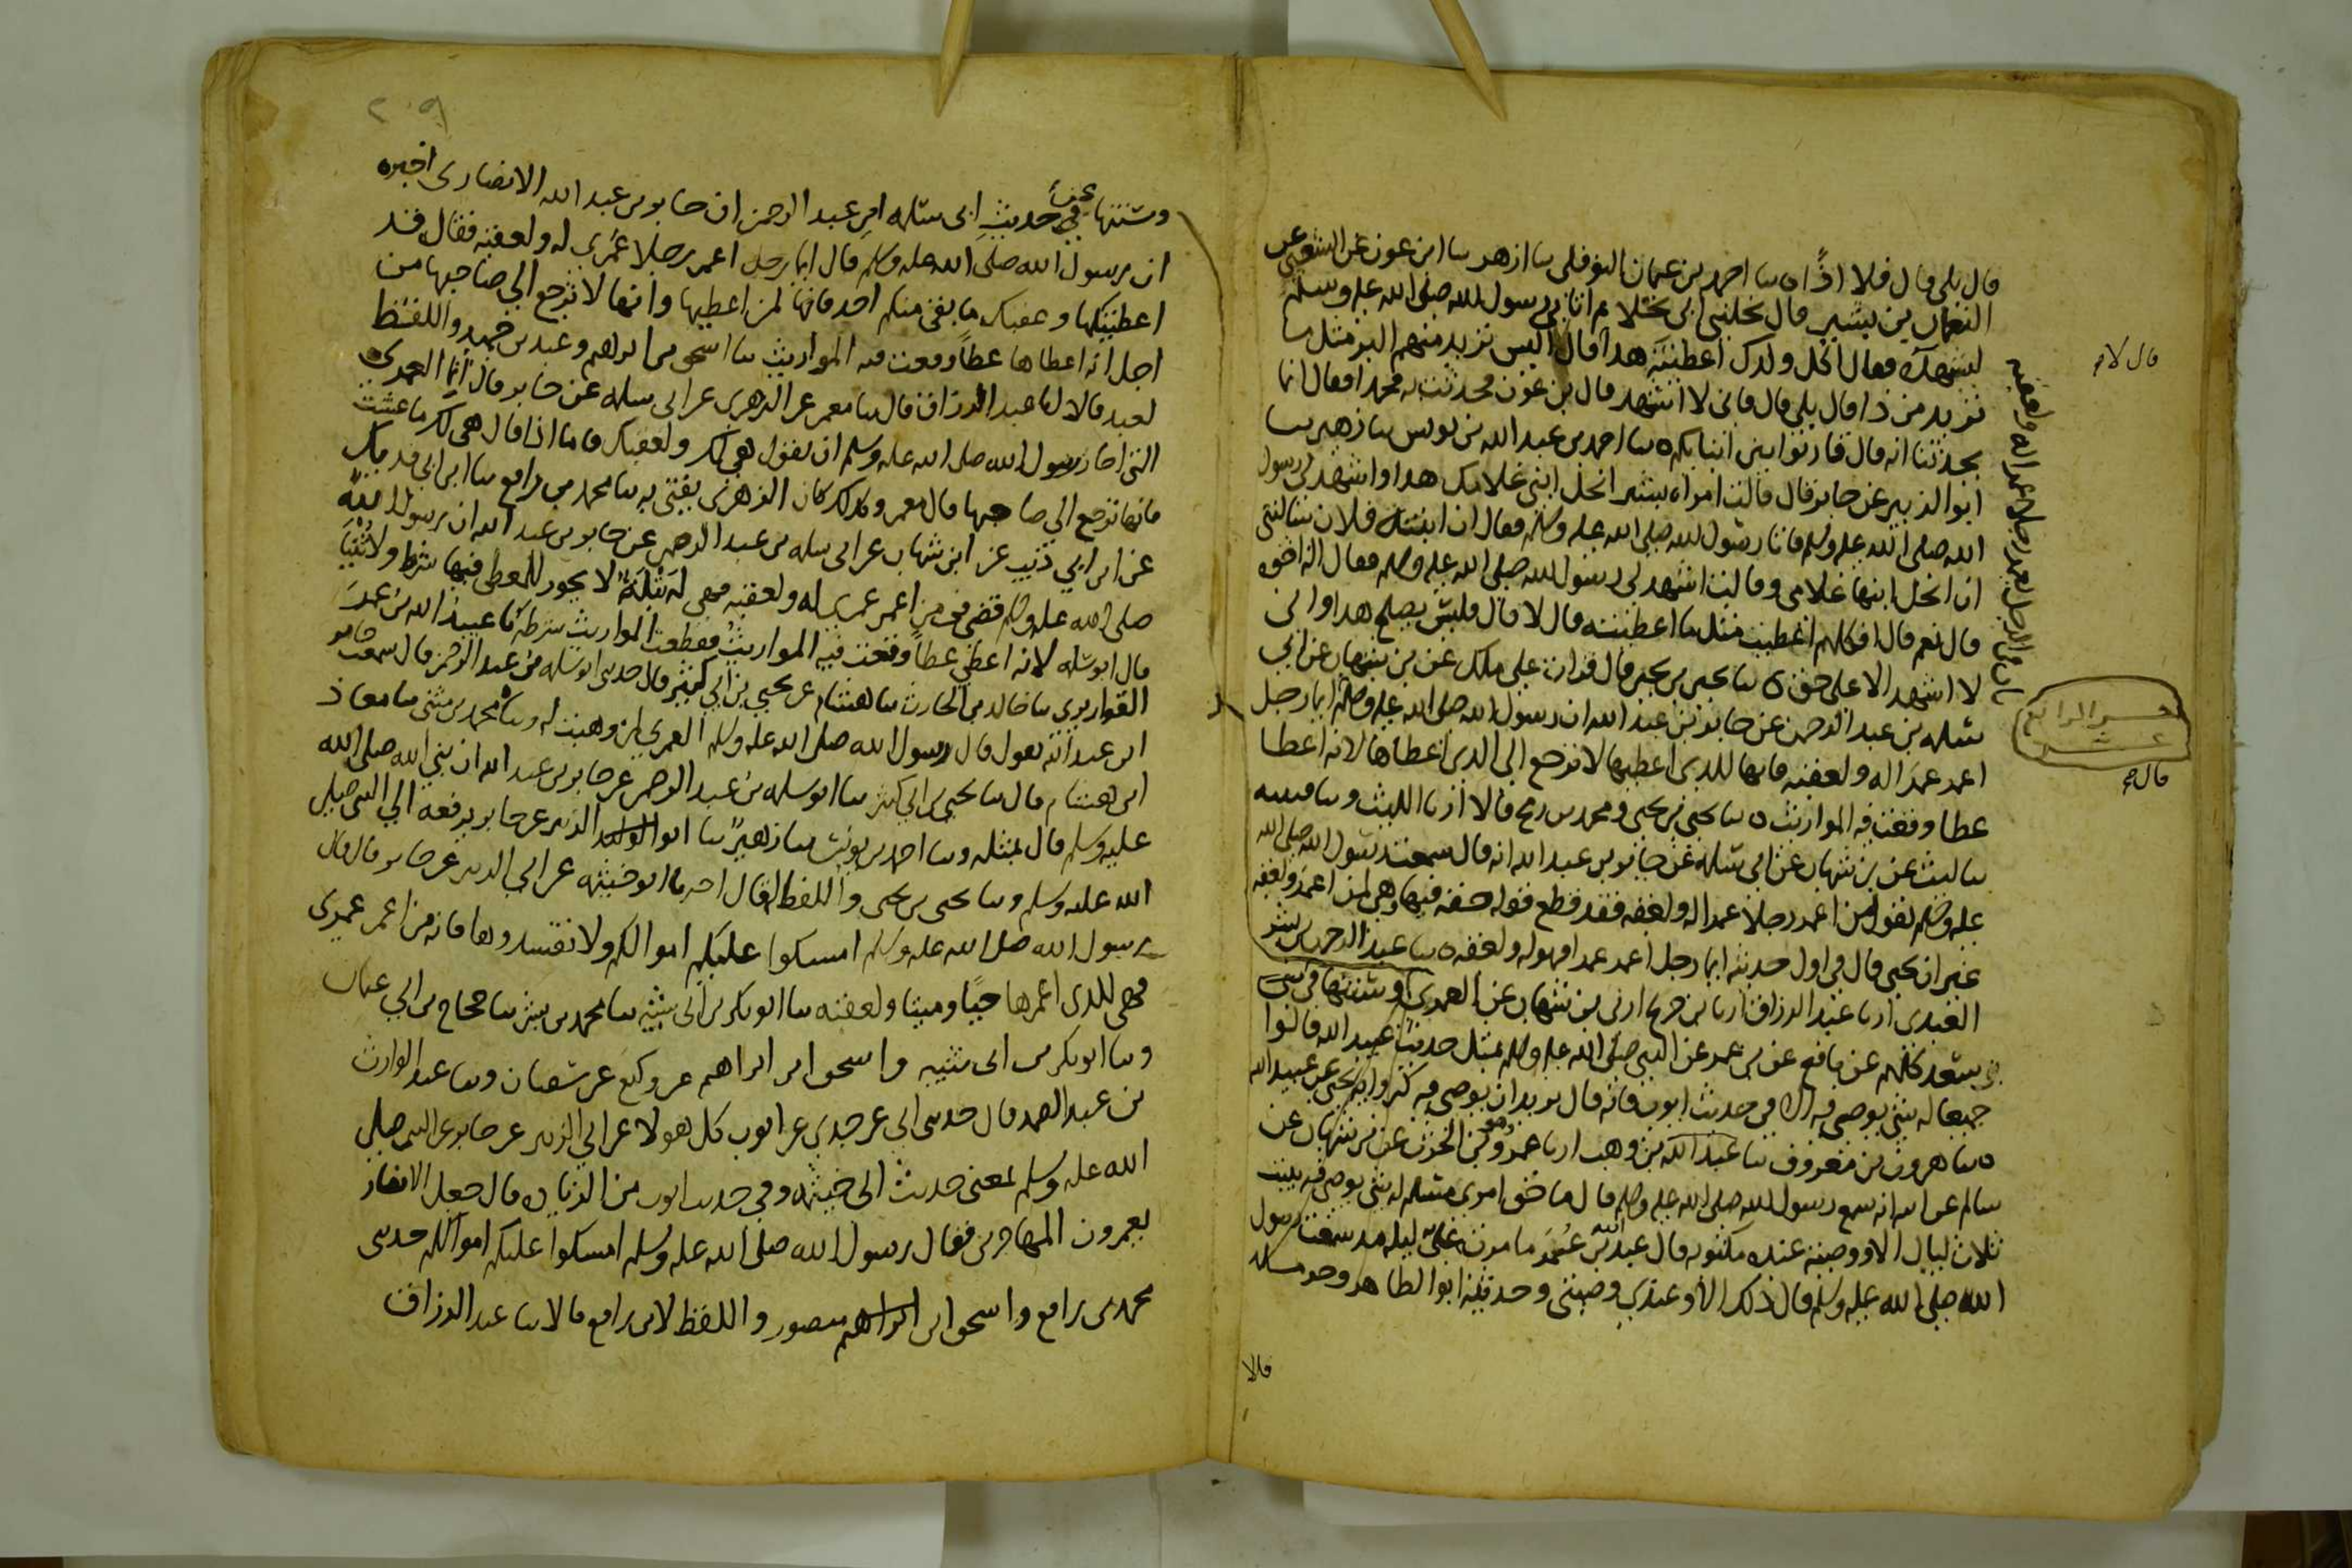 قال بلى قال فلا اذًا ٥ ىىا احمد بن عثمان النوفلى ىىا ازهر ىىا ابن عون عن الشعبى عن
النعمان بن بشير قال نحلنى ابى نحلا ثم اتا بى رسول الله صلى الله عليه وسلم
ليشهده فقال اكل ولدك اعطيته هذا قال اليس تريد منهم البر مثل ما
تريد من ذا قال بلى قال فانى لا اشهد قال بن عون فحدثت به محمدا فقال انما
تحدثنا انه قال قاربوا بين ابنايكم ٥ ىىا احمد بن عبد الله بن يونس ىىا زهير ىىا
ابوا الزبير عن جابر قال قالت امراه بشير انحل ابنى غلامك هذا واشهد لى رسول
الله صلى الله عليه وسلم فاتا رسول الله صلى الله عليه وسلم فقال ان ابنت فلان سالتنى
ان انحل ابنها غلامى وقالت اشهد لى رسول الله صلى الله عليه وسلم فقال اله اخوه
قال نعم قال افكلهم اعطيت مثل ما اعطيته قال لا قال فليس يصلح هذا وانى
لا اشهد الا على حق ٥ ىىا يحيى بن يحيى قال قرات على ملك عن بن شهاب عن ابى
سلمه بن عبد الرحمن عن جابر بن عبد الله ان رسول الله صلى الله عليه وسلم قال ايما رجل
اعمر عمرا له ولعقبه فانها للذى اعطيها لا ترجع الى الذى اعطاها لانه اعطا
عطا وقعت فيه المواريث ٥ ىىا يحيى بن يحيى ومحمد بن رمح قالا ارنا الليث وىىا قتيبه
ىىا ليث عن بن شهاب عن ابى سلمه عن جابر بن عبد الله انه قال سمعت رسول الله صلى الله
عليه وسلم يقول من اعمر رجلا عمرا له ولعقبه فقد قطع قوله حقه فيها وهى لمن اعمر ولعقبه
غير ان يحيى قال فى اول حديثه ايما رجل اعمر عمرا فهو له ولعقبه ٥ ىىا عبد الرحمن بن بشر
العبدى ارنا عبد الرزاق ارنا بن جريج ارنى بن شهاب عن العمرى وسنتها
بن سعد كلهم عن نافع عن بن عمر عن النبى صلى الله عليه وسلم بمثل حديث عبيد الله قالوا
جميعا له شى يوصى فيه الا فى حديث ايوب فانه قال يريد ان يوصى فيه كروايه يحيى عن عبيد الله
٥ ىىا هرون بن معروف ىىا عبد الله بن وهب ارنا عمرو وهو بن الحرث عن بن شهاب عن
سالم عن ابيه انه سمع رسول الله صلى الله عليه وسلم قال ما حق امرى مسلم له شى يوصى فيه يبيت
ثلاث ليال الا ووصيته عنده مكتوبه قال عبد الله بن عمر ما مرت على ليله مذ سمعت رسول
الله صلى الله عليه وسلم قال ذلك الا وعندى وصيتى وحدثنيه ابوا الطاهر وحرمله
قالا
قال لا
قال
وسنتها عن حديث ابى سلمه ابن عبد الرحمن ان جابر بن عبد الله الانصارى اخبره
ان رسول الله صلى الله عليه وسلم قال ايما رجل اعمر رجلا عمرى له ولعقبه فقال قد
اعطيتكها وعقبك ما بقى منكم احد فانها لمن اعطيها وانها لا ترجع الى صاحبها من
اجل انه اعطاها عطاً وقعت فيه المواريث ىىا اسحق بن ابراهيم وعبد بن حميد واللفظ
لعبد قالا انا عبد الرزاق قال ىىا معمر عن الزهرى عن ابى سلمه عن جابر قال انما العمرى
التى اجاز رسول الله صلى الله عليه وسلم ان يقول هى لك ولعقبك فاما اذا قال هى لك ما عشت
فانها ترجع الى صاحبها قال معمر وكذلك كان الزهرى يفتى به ىىا محمد بن رافع ىىا ابن ابى فديك
عن ابن ابى ذئب عن ابن شهاب عن ابى سلمه بن عبد الرحمن عن جابر بن عبد الله ان رسول الله
صلى الله عليه وسلم قضى فى من اعمر عمرى له ولعقبه فهى له بتلةً لا يجوز للمعطى فيها شرط ولا ثنيا
قال ابو سلمه لانه اعطى عطاً وقعت فيه المواريث فقطعت المواريث شرطه ىىا عبيد الله بن عمر
القواريرى ىىا خالد بن الحارث ىىا هشام عن يحيى بن ابى كثير قال حدثنى ابو سلمه بن عبد الرحمن قال سمعت جابر
ابن عبد الله يقول قال رسول الله صلى الله عليه وسلم العمرى لمن وهبت له وىىا محمد بن مثنى ىىا معاذ
ابن هشام قال ىىا يحيى بن ابى كثير ىىا ابو سلمه بن عبد الرحمن عن جابر بن عبد الله ان نبى الله صلى الله
عليه وسلم قال بمثله وىىا احمد بن يونس ىىا زهير ىىا ابو الزبير عن جابر يرفعه الى النبى صلى
الله عليه وسلم وىىا يحيى بن يحيى واللفظ له قال اخبرنا ابو خيثمه عن ابى الزبير عن جابر قال قال
رسول الله صلى الله عليه وسلم امسكوا عليكم اموالكم ولا تفسدوها فانه من اعمر عمرى
فهى للذى اعمرها حيًا وميتا ولعقبه ىىا ابو بكر بن ابى شيبه ىىا محمد بن بشر ىىا حجاج بن ابى عثمان
وىىا ابو بكر بن ابى شيبه واسحق ابن ابراهيم عن وكيع عن سفيان وىىا عبد الوارث
بن عبد الصمد قال حدثنى ابى عن جدى عن ايوب كل هولا عن ابى الزبير عن جابر عن النبى صلى
الله عليه وسلم بمعنى حديث ابى خيثمه وفى حديث ايوب من الزياده قال جعل الانصار
يعمرون المهاجرين فقال رسول الله صلى الله عليه وسلم امسكوا عليكم اموالكم حدثنى
محمد بن رافع واسحق ابن منصور واللفظ لابن رافع قالا ىىا عبد الرزاق